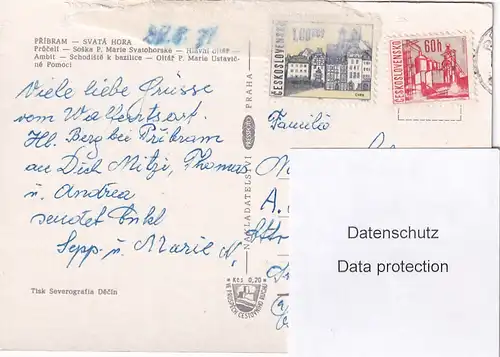 PŘÍBRAM — SVATÁ HORA
Průčelí — Soška P. Marie Svatohorské — Hlavní oltář —
Ambit — Schodiště k bazilice — Oltář P. Marie Ustavič-
né Pomoci
27.8.71
Viele liebe Grüsse
vom Wallfahrtsort
Hl. Berg bei Příbram
an Dich Mitzi, Thomas
u. Andrea
sendet Onkl
Sepp u. Marie N.
Tisk Severografia Děčín
NAKLADATELSTVÍ PRESSFOTO PRAHA
Kčs 0,70
VE PROSPĚCH CESTOVNÍHO RUCHU
ČESKOSLOVENSKO
1.00 Kčs
ČESKOSLOVENSKO
60h
Familie
A.
Datenschutz
Data protection